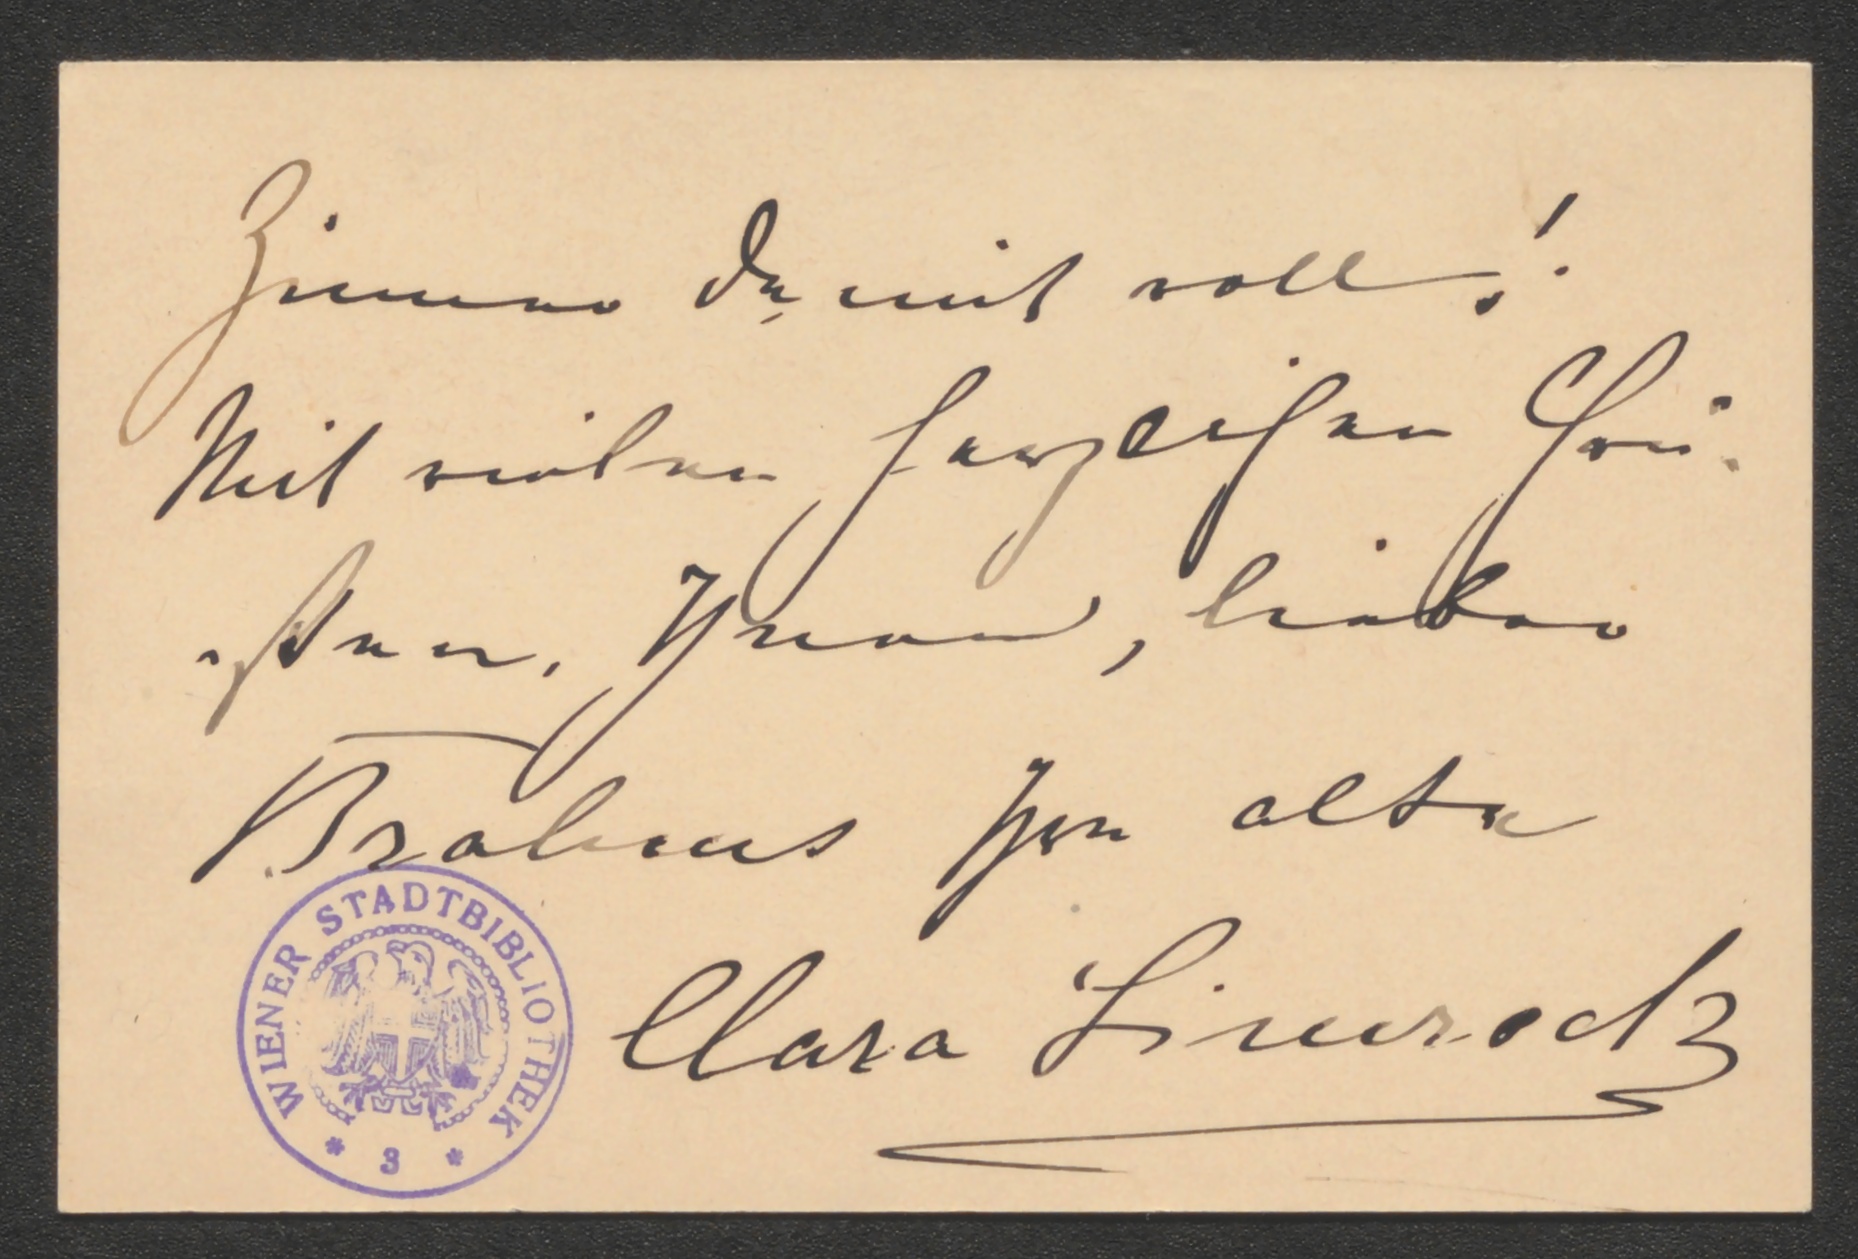 Zimmer damit voll!
Mit vielen herzlichen Grü-
ßen, Ihnen, lieber
Brahms Ihre alte
Clara Simrock
WIENER STADTBIBLIOTHEK
* 3 *